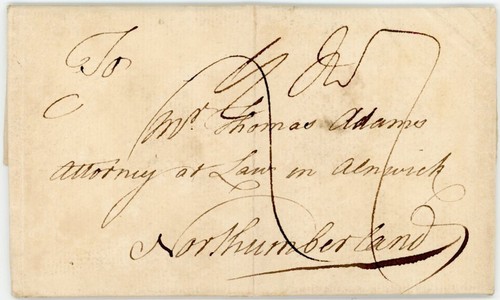 To
Mr. Thomas Adams
Attorney at Law in Alnwick
Northumberland